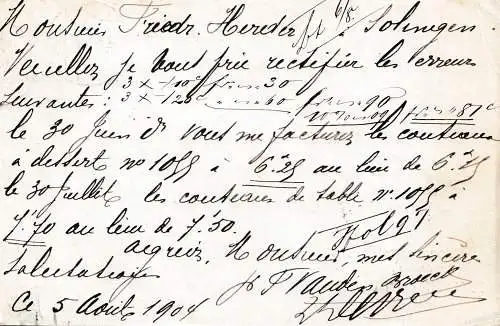 Monsieur Friedr. Herder à Solingen.
Veuillez je vous prie rectifier les erreurs
suivantes :
le 30 Juin dr vous me facturez les couteaux
à dessert no 1055 à 6.25 au lieu de 6.15
le 30 Juillet les couteaux de table no 1055 à
7.70 au lieu de 7.50.
Agréez, Monsieur, mes sincères
salutations
F Vanden Broeck
Ce 5 Août 1904